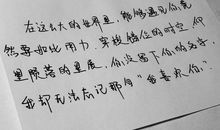 在这么大的世界里，能够遇见你竟
然要如此用力。穿梭错位的时空，仰
望陨落的星辰，你没留下你的名字，
我却无法忘记那句“我喜欢你。”